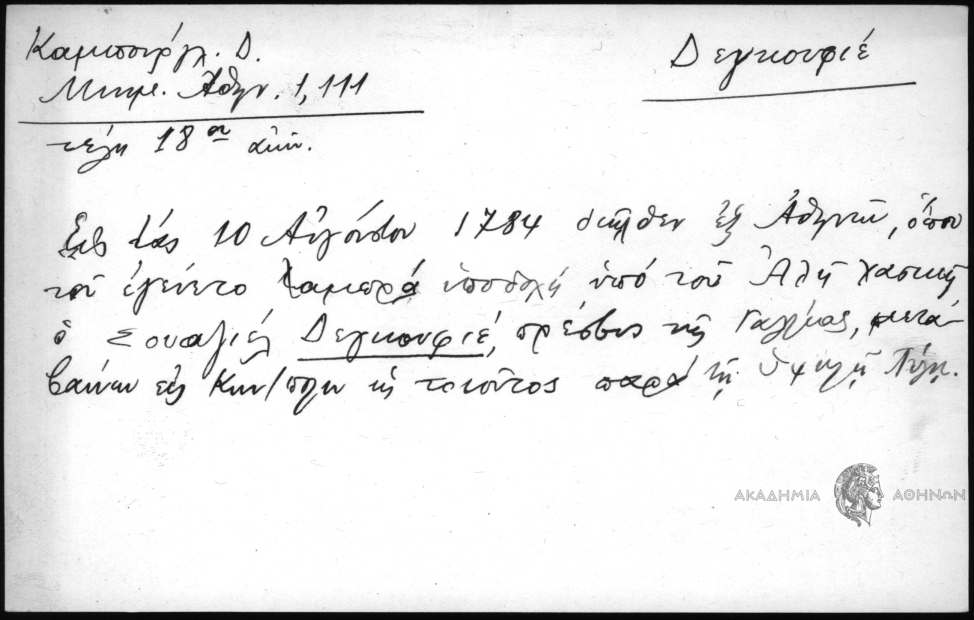 Καμπούρογλ. Δ.
Δεγκουφιέ
Μνημ. Ἀθην. 1, 111
τέλη 18ου αἰών.
Εἰς τάς 10 Αὐγούστου 1784 διῆλθεν ἐξ Ἀθηνῶν, ὅπου
τοῦ ἐγένετο λαμπρά ὑποδοχή ὑπό τοῦ Ἀλῆ Χασεκῆ
ὁ Σουαζιέλ Δεγκουφιέ, πρέσβυς τῆς Γαλλίας, μετα-
βαίνων εἰς Κων/πολιν ὡς τοιοῦτος παρά τῇ Ὑψηλῇ Πύλῃ.
ΑΚΑΔΗΜΙΑ ΑΘΗΝΩΝ